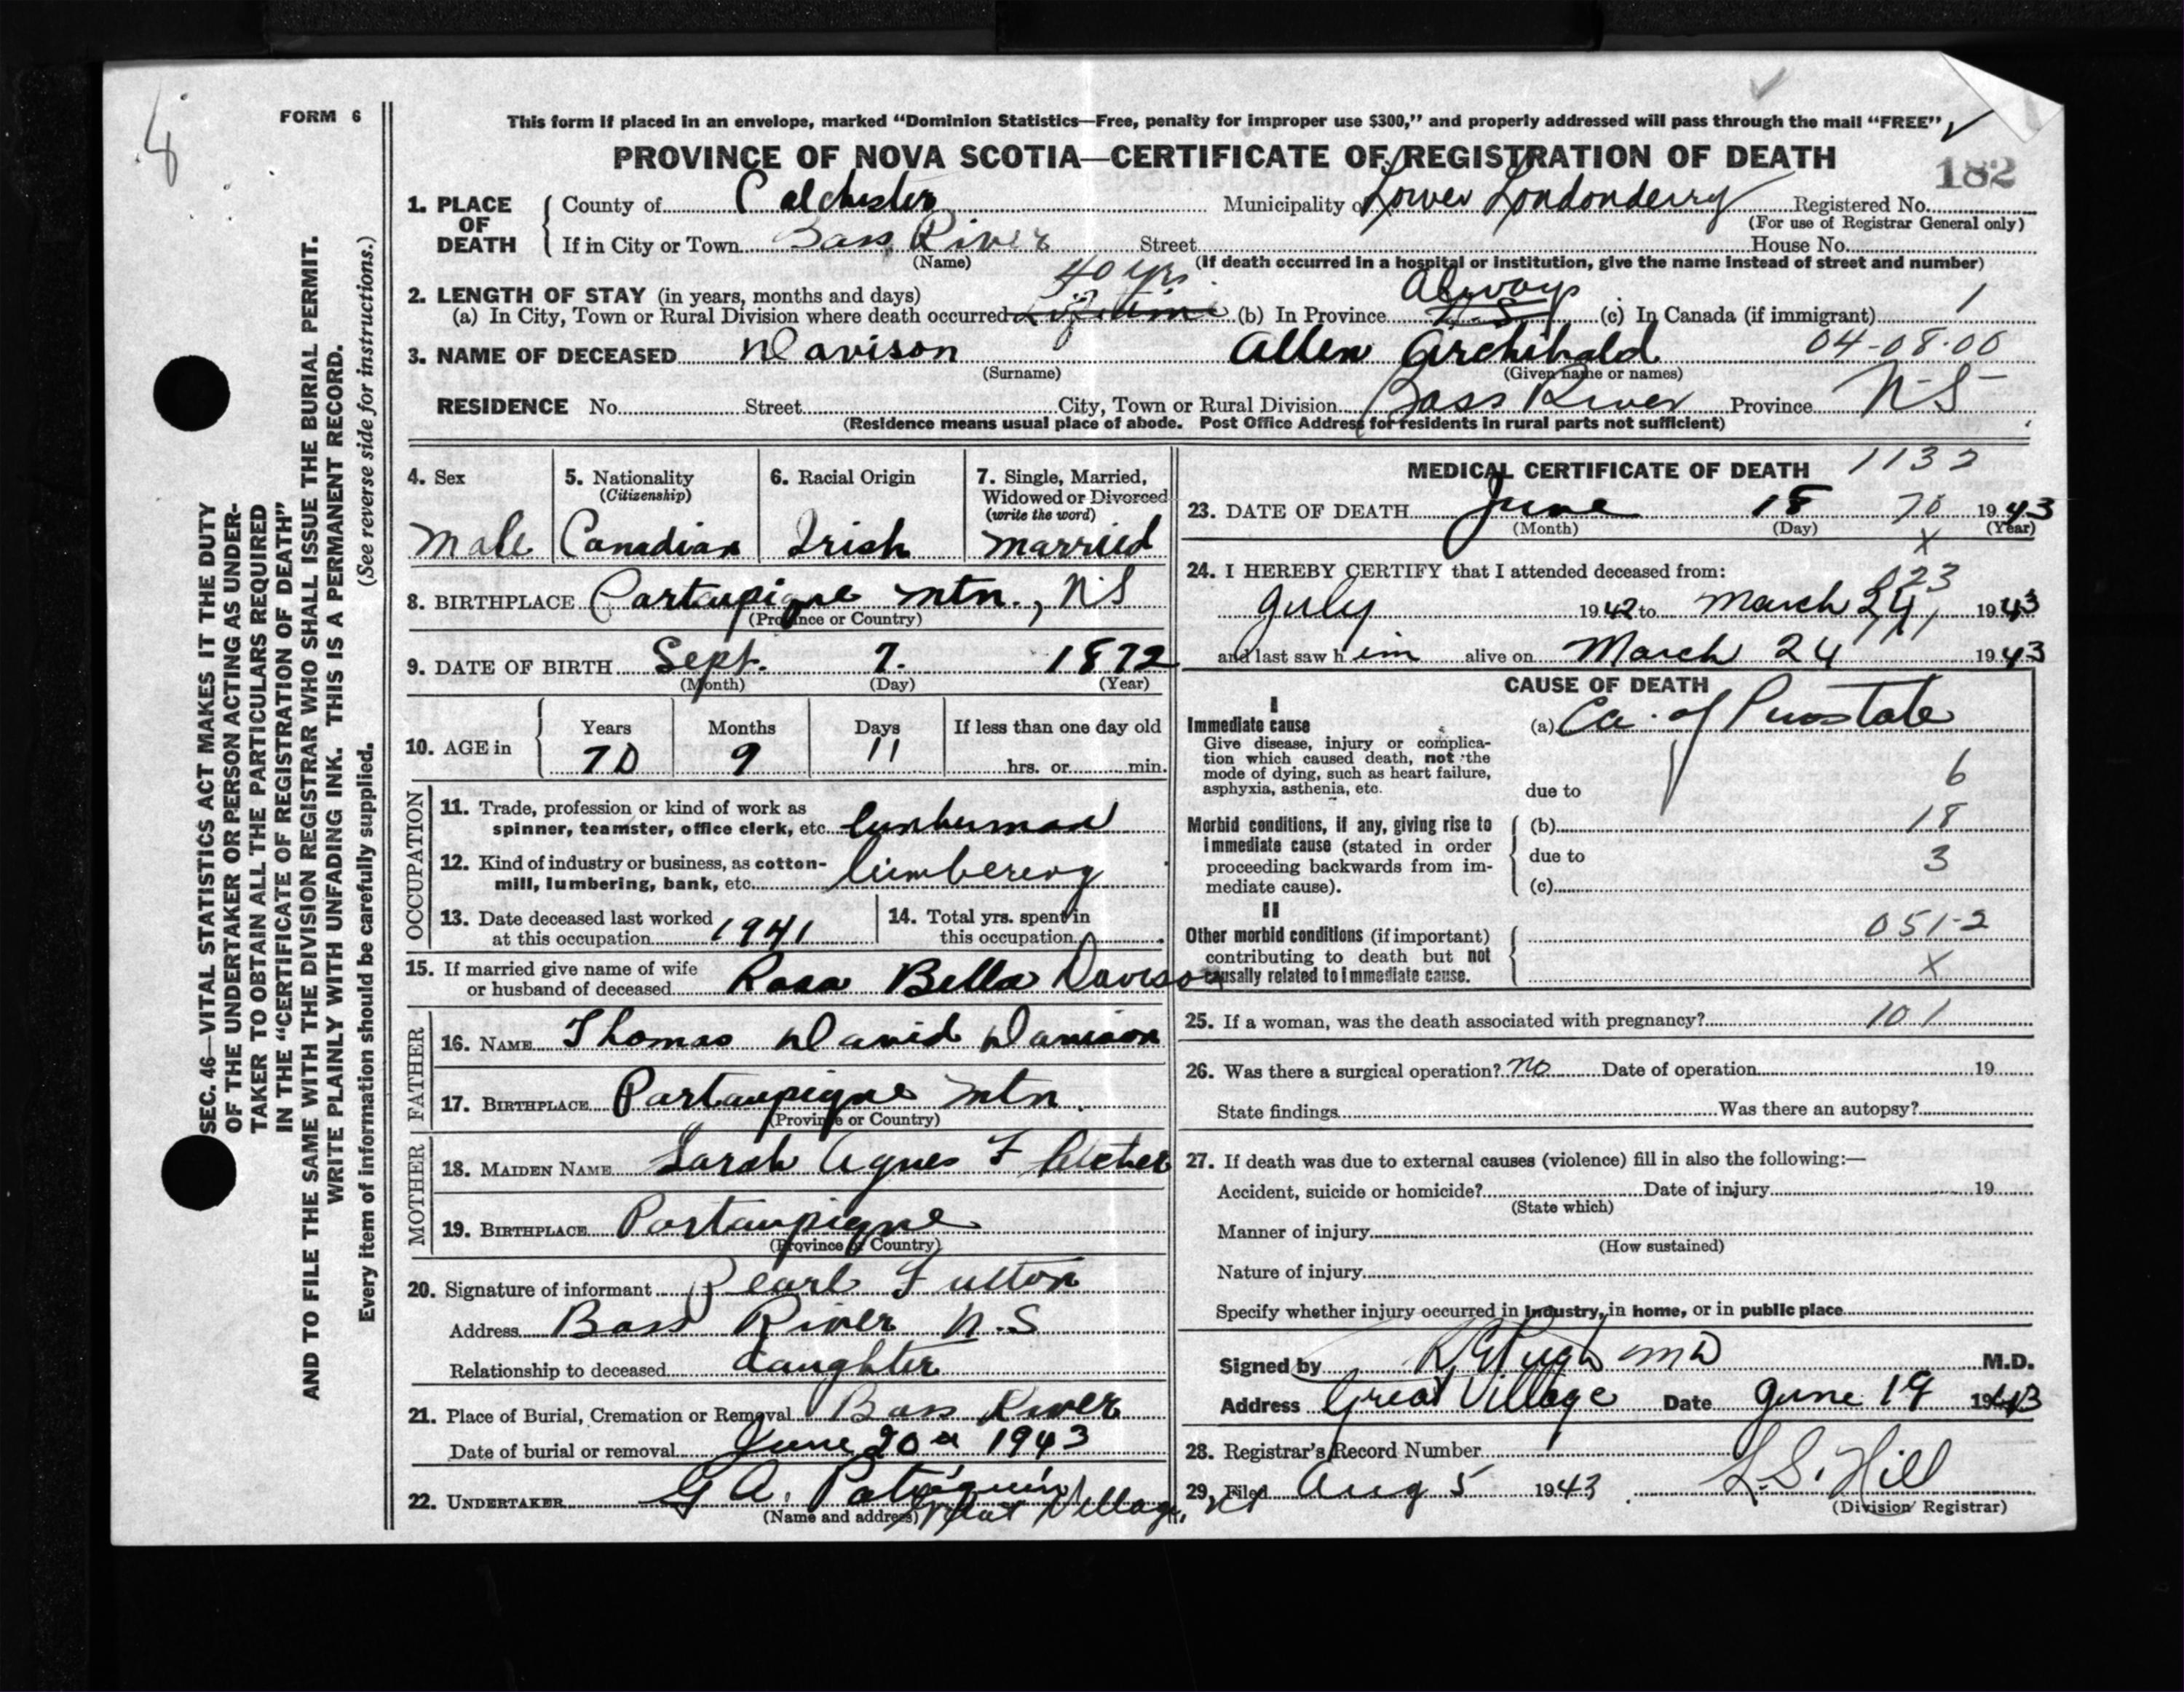 FORM 6
This form if placed in an envelope, marked “Dominion Statistics—Free, penalty for improper use $300,” and properly addressed will pass through the mail “FREE”
PROVINCE OF NOVA SCOTIA—CERTIFICATE OF REGISTRATION OF DEATH
182
1. PLACE OF DEATH
County of Colchester Municipality of Lower Londonderry Registered No.
(For use of Registrar General only)
If in City or Town Bass River Street House No.
(Name) (If death occurred in a hospital or institution, give the name instead of street and number)
2. LENGTH OF STAY (in years, months and days) 40 yrs Always
(a) In City, Town or Rural Division where death occurred Lifetime (b) In Province N.S. (c) In Canada (if immigrant) 1
3. NAME OF DECEASED Davison Allen Archibald 04-08-00
(Surname) (Given name or names)
RESIDENCE No. Street City, Town or Rural Division Bass River Province N-S-
(Residence means usual place of abode. Post Office Address for residents in rural parts not sufficient)
4. Sex Male
5. Nationality (Citizenship) Canadian
6. Racial Origin Irish
7. Single, Married, Widowed or Divorced (write the word) Married
8. BIRTHPLACE Portaupique Mtn., N.S
(Province or Country)
9. DATE OF BIRTH Sept. 7. 1872
(Month) (Day) (Year)
10. AGE in Years Months Days If less than one day old
70 9 11 hrs. or min.
OCCUPATION
11. Trade, profession or kind of work as
spinner, teamster, office clerk, etc. lumberman
12. Kind of industry or business, as cotton-
mill, lumbering, bank, etc. lumbering
13. Date deceased last worked
at this occupation 1941
14. Total yrs. spent in
this occupation
15. If married give name of wife
or husband of deceased Rosa Bella Davison
FATHER
16. NAME Thomas David Davison
17. BIRTHPLACE Portaupique Mtn.
(Province or Country)
MOTHER
18. MAIDEN NAME Sarah Agnes Fletcher
19. BIRTHPLACE Portaupique
(Province or Country)
20. Signature of informant Pearl Fulton
Address Bass River N.S
Relationship to deceased daughter
21. Place of Burial, Cremation or Removal Bass River
Date of burial or removal June 20th 1943
22. UNDERTAKER G A. Patriquin
(Name and address) Great Village, NS
MEDICAL CERTIFICATE OF DEATH 1132
23. DATE OF DEATH June 18 70 1943
(Month) (Day) (Year)
X
24. I HEREBY CERTIFY that I attended deceased from: 023
July 1942 to March 24, 1943
and last saw him alive on March 24 1943
CAUSE OF DEATH
I
Immediate cause (a) Ca. of Prostate
Give disease, injury or complica-
tion which caused death, not the
mode of dying, such as heart failure,
asphyxia, asthenia, etc. due to 6
Morbid conditions, if any, giving rise to (b) 18
immediate cause (stated in order due to 3
proceeding backwards from im-
mediate cause). (c)
II
Other morbid conditions (if important) 051-2
contributing to death but not
causally related to immediate cause. X
25. If a woman, was the death associated with pregnancy? 101
26. Was there a surgical operation? No Date of operation 19
State findings Was there an autopsy?
27. If death was due to external causes (violence) fill in also the following:—
Accident, suicide or homicide? Date of injury 19
(State which)
Manner of injury
(How sustained)
Nature of injury
Specify whether injury occurred in industry, in home, or in public place
Signed by R G Pugh MD M.D.
Address Great Village Date June 19 1943
28. Registrar's Record Number
29. Filed Aug 5 1943 L.S. Hill
(Division Registrar)
SEC. 46—VITAL STATISTICS ACT MAKES IT THE DUTY
OF THE UNDERTAKER OR PERSON ACTING AS UNDER-
TAKER TO OBTAIN ALL THE PARTICULARS REQUIRED
IN THE “CERTIFICATE OF REGISTRATION OF DEATH”
AND TO FILE THE SAME WITH THE DIVISION REGISTRAR WHO SHALL ISSUE THE BURIAL PERMIT.
WRITE PLAINLY WITH UNFADING INK. THIS IS A PERMANENT RECORD.
Every item of information should be carefully supplied. (See reverse side for instructions.)